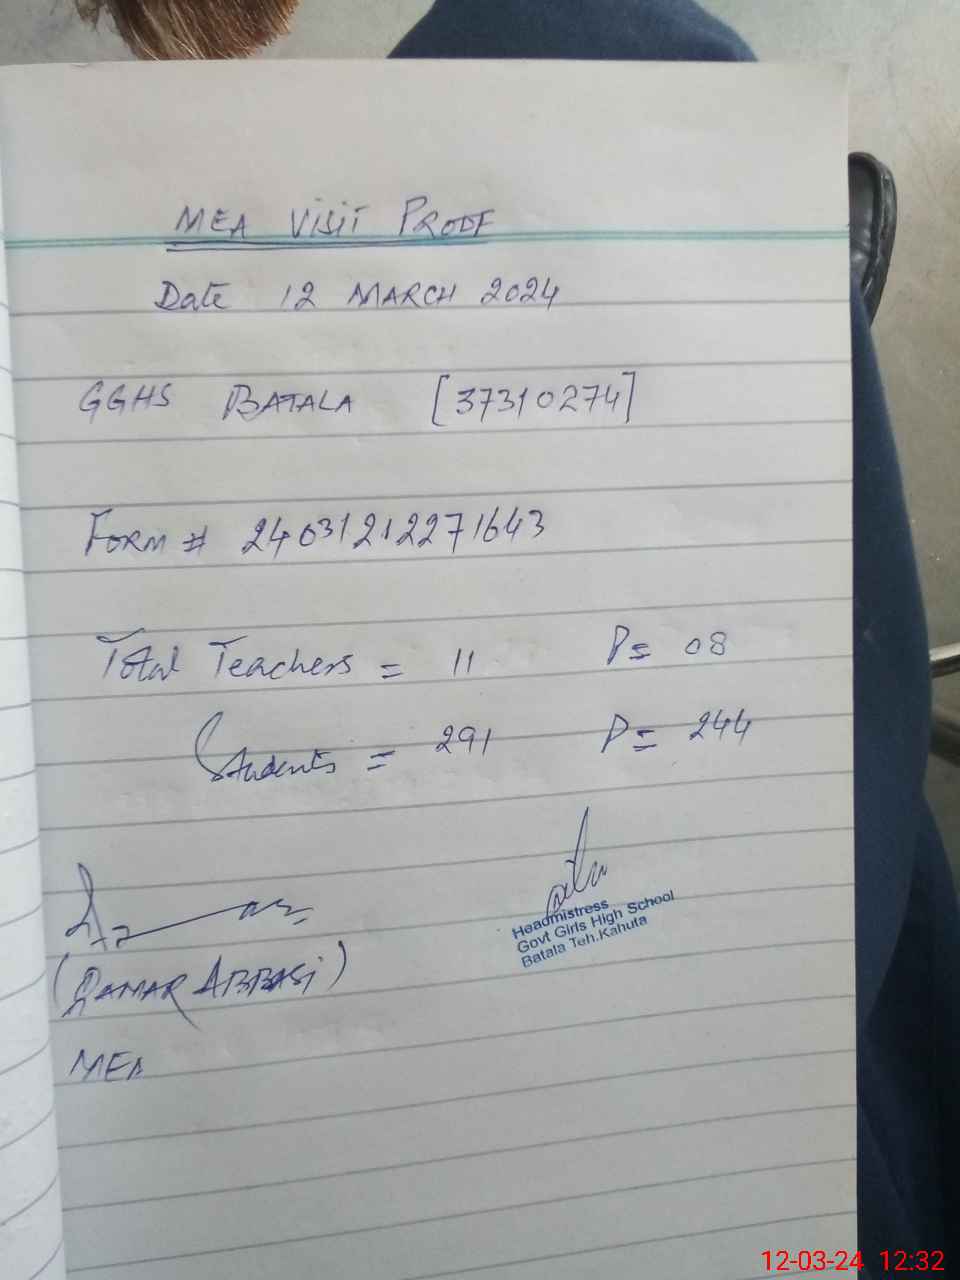 MEA VISIT PROOF
Date 12 MARCH 2024
GGHS BATALA [37310274]
FORM # 24031212271643
Total Teachers = 11 P= 08
Students = 291 P= 244
Headmistress
Govt Girls High School
Batala Teh.Kahuta
(QAMAR ABBASI)
MEA
12-03-24 12:32